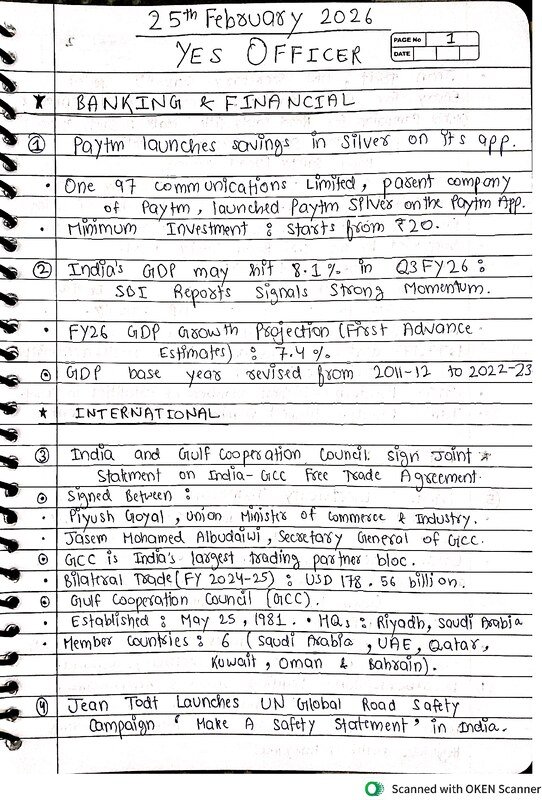 25th February 2026
YES OFFICER
PAGE No 1
DATE
★ BANKING & FINANCIAL
① Paytm launches savings in silver on its app.
• One 97 communications Limited, parent company
of Paytm, launched Paytm Silver on the Paytm App.
• Minimum Investment : Starts from ₹20.
② India's GDP may hit 8.1% in Q3FY26 :
SBI Reports Signals Strong Momentum.
• FY26 GDP Growth Projection (First Advance
Estimates) : 7.4 %
⊙ GDP base year revised from 2011-12 to 2022-23
★ INTERNATIONAL
③ India and Gulf Cooperation Council sign Joint ★
Statment on India-GCC Free Trade Agreement.
⊙ Signed Between :
• Piyush Goyal, Union Minister of Commerce & Industry.
• Jasem Mohamed Albudaiwi, Secretary General of GCC.
⊙ GCC is India's largest trading partner bloc.
• Bilateral Trade (FY 2024-25) : USD 178.56 billion.
⊙ Gulf Cooperation Council (GCC).
• Established : May 25, 1981. • HQs : Riyadh, Saudi Arabia
• Member Countries : 6 (Saudi Arabia, UAE, Qatar,
Kuwait, Oman & Bahrain).
④ Jean Todt Launches UN Global Road Safety
Campaign 'Make A Safety Statement' in India.
Scanned with OKEN Scanner